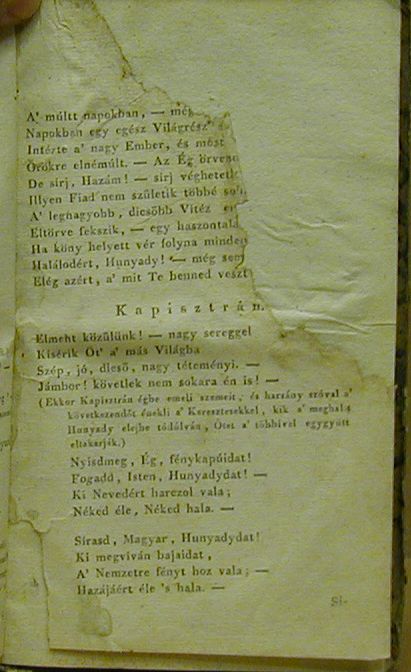 A' múltt napokban, — még
Napokban egy egész Világrész'
Intézte a' nagy Ember, és most
Örökre elnémúlt. — Az Ég örvend
De sírj, Hazám! — sírj véghetetl
Illyen Fiad nem születik többé so
A' legnagyobb, dicsőbb Vitéz
Eltörve fekszik, — egy haszontal
Ha köny helyett vér folyna minden
Halálodért, Hunyady! — még sem
Elég azért, a' mit Te benned veszt
Kapisztrán.
Elmeht közülünk! — nagy sereggel
Kisérik Őt' a' más Világba
Szép, jó, dicső, nagy téteményi. —
Jámbor! követlek nem sokára én is! —
(Ekkor Kapisztrán égbe emeli szemeit, és harsány szóval a'
következendőt énekli a' Keresztesekkel, kik a' meghalt
Hunyady elejbe tódúlván, Őtet a' többivel egygyütt
eltakarják.)
Nyisdmeg, Ég, fénykapúidat!
Fogadd, Isten, Hunyadydat! —
Ki Nevedért harczol vala;
Néked éle, Néked hala. —
Sirasd, Magyar, Hunyadydat!
Ki megvíván bajaidat,
A' Nemzetre fényt hoz vala; —
Hazájáért éle 's hala. —
Si-